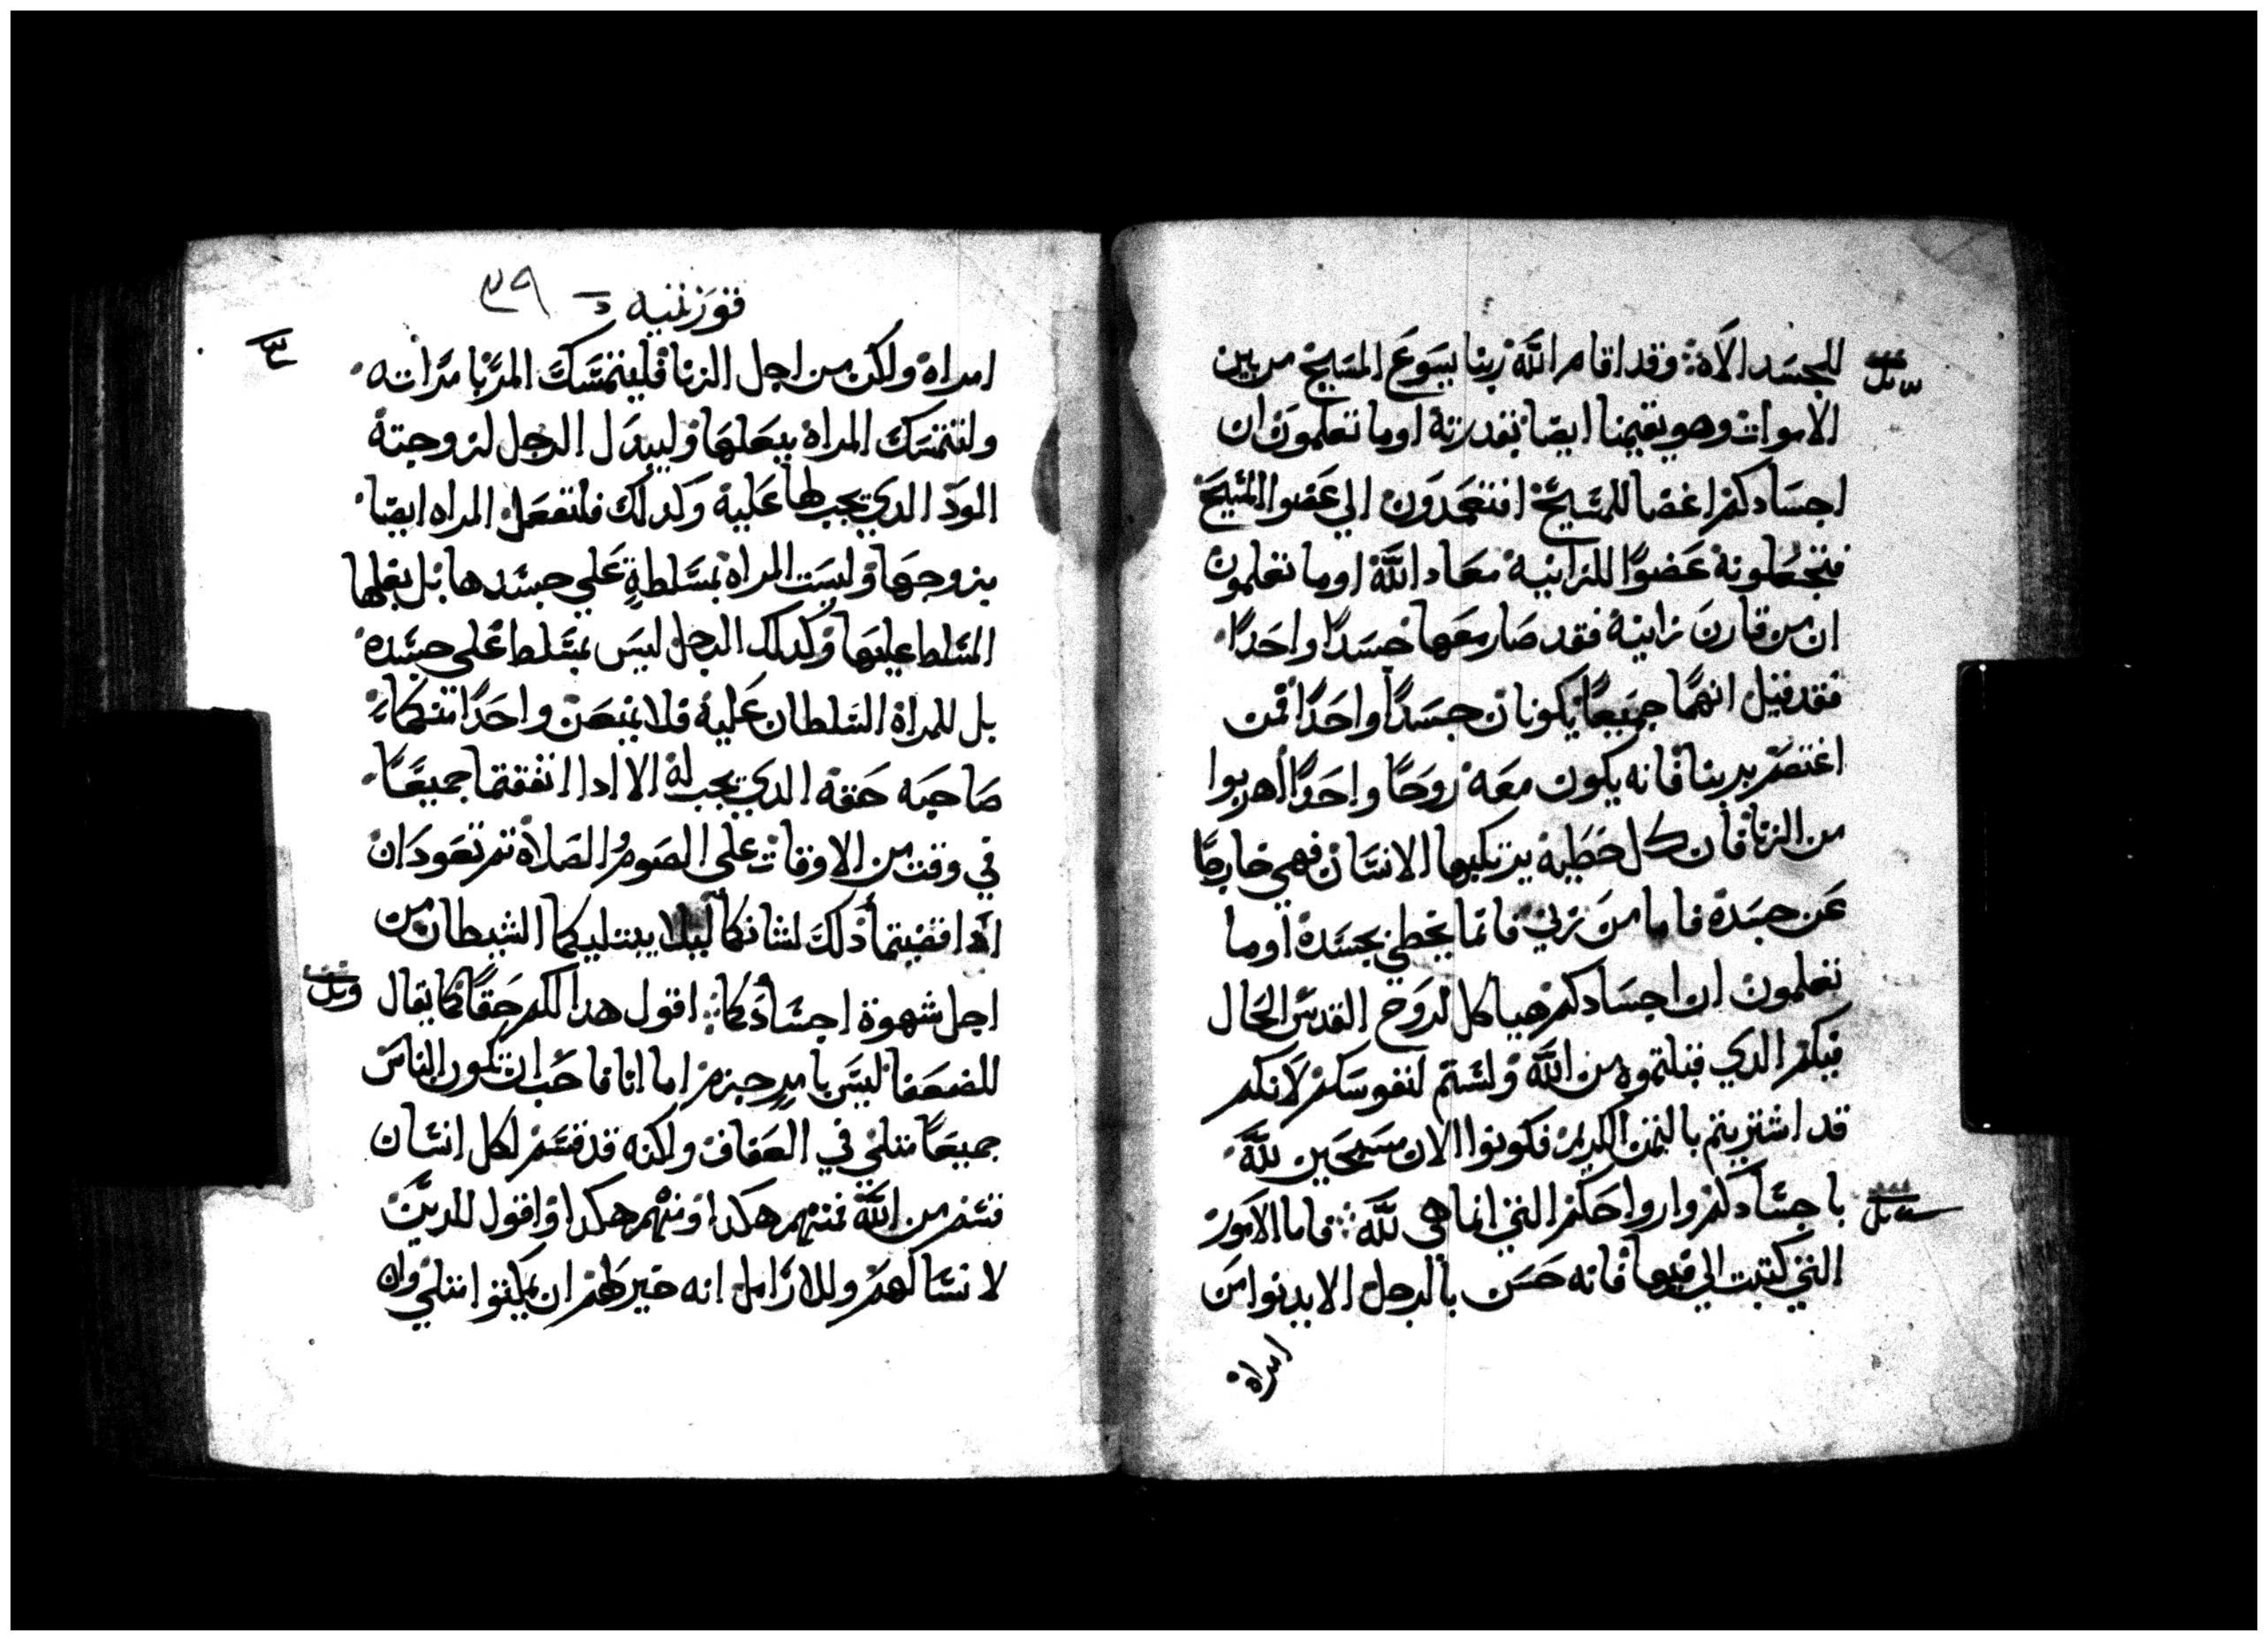 للجسد الاه وقد اقام الله ربنا يسوع المسيح من بين
الاموات وهو يقيمنا ايضا بقدرته اوما تعلمون ان
اجسادكم اعضا للمسيح افتعمدون الي عضو المسيح
فتجعلونه عضوًا للزانية معاد الله اوما تعلمون
ان من قارن زانية فقد صار معها جسدًا واحدًا
فقد قيل انهما جميعًا يكونان جسدًا واحدًا فمن
اعتصم بربنا فانه يكون معه روحًا واحدًا اهربوا
من الزنا فان كل خطية يرتكبها الانسان فهي خارجًا
عن جسده فاما من زني فانما يخطي بجسده اوما
تعلمون ان اجسادكم هياكل لروح القدس الحال
فيكم الدي قبلتموه من الله ولستم لنفوسكم لانكم
قد اشتريتم بالتمن الكريم فكونوا الان مسبحين لله
باجسادكم وارواحكم التي انما هي لله فاما الامور
التي كتبت الي فيها فانه حسن بالرجل الا يدنوا من
امراة
قورنتيه
٣٩
امراة ولكن من اجل الزنا فليتمسك المرُّ بامراته
ولتتمسك المراة ببعلها وليبدل الرجل لزوجته
الود الدي يجب لها عليه وكدلك فلتفعل المراه ايضا
بزوجها وليست المراة بمسلطةٍ علي جسدها بل بعلها
المسلط عليها وكدلك الرجل ليس بمسلط علي جسده
بل للمراة السلطان عليه فلا يمنعن واحدًا منكما
صاحبه حقه الدي يجب له الا ادا اتفقتما جميعًا
في وقت من الاوقات علي الصوم والصلاة تم تعودان
ادا قضيتما دلك لشانكما ليلا يبتليكما الشيطان من
اجل شهوة اجسادكما اقول هدا لكم حقًا كما يقال
للضعفا ليس بامرٍ جزم اما انا فاحب ان تكون الناس
جميعًا متلي في العفاف ولكنه قد قسم لكل انسان
قسم من الله فمنهم هكدا ومنهم هكدا واقول للدين
لا نسا لهم وللارامل انه خير لهم ان يمكتوا متلي وان